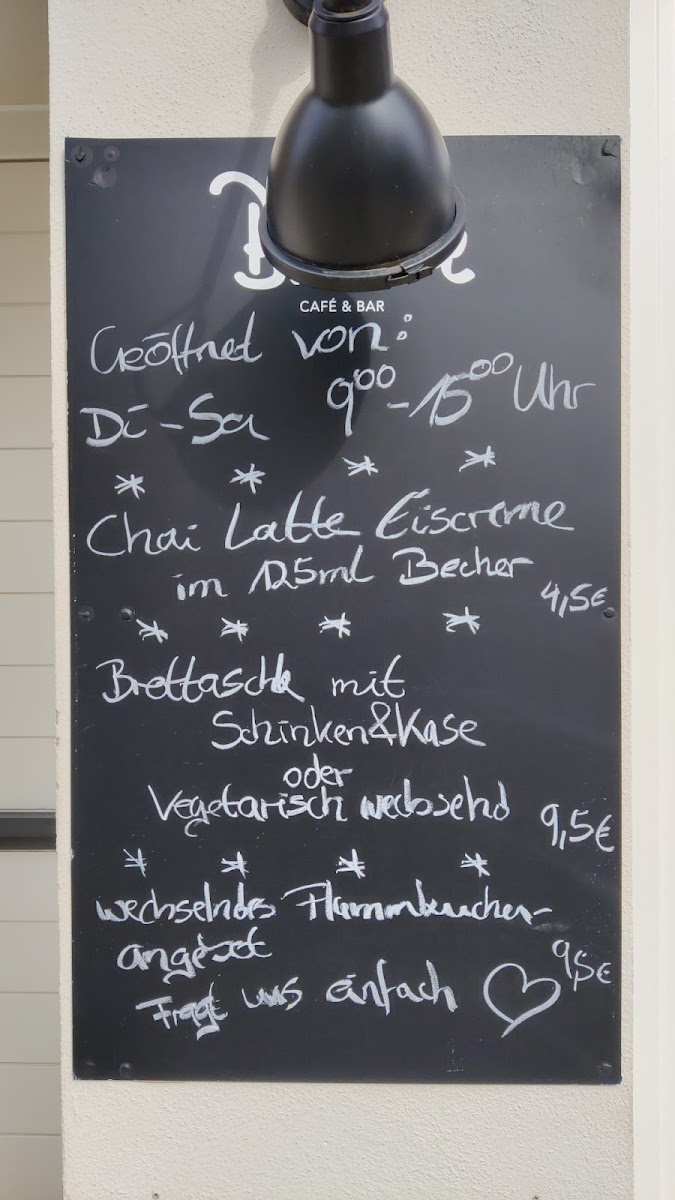 CAFÉ & BAR
Geöffnet von:
Di-Sa 9⁰⁰-15⁰⁰ Uhr
* * * *
Chai Latte Eiscreme
im 125ml Becher 4,5€
* * * *
Brottasche mit
Schinken&Käse
oder
Vegetarisch wechselnd 9,5€
* * * *
wechselndes Flammkuchen-
angebot 9,5€
Fragt uns einfach ♡